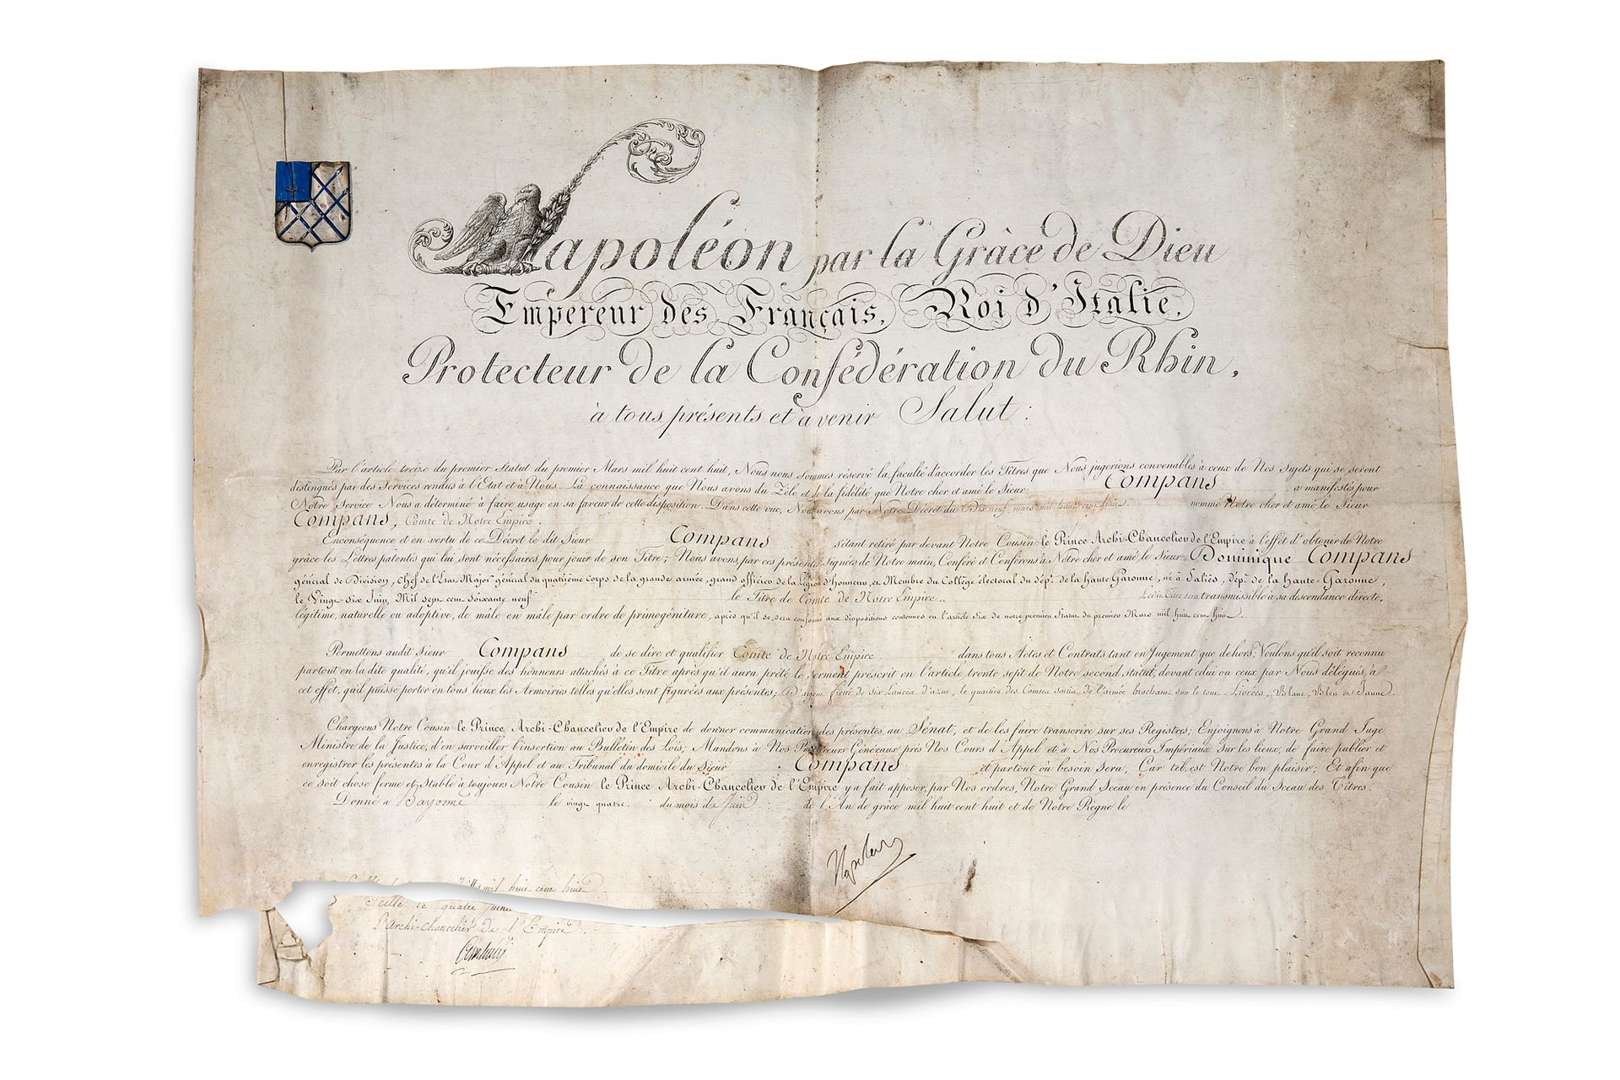 Napoléon par la Grâce de Dieu
Empereur des Français, Roi d'Italie,
Protecteur de la Confédération du Rhin,
à tous présents et à venir Salut:
Par l'article treize du premier Statut du premier Mars mil huit cent huit, Nous nous sommes réservé la faculté d'accorder les Titres que Nous jugerions convenables à ceux de Nos Sujets qui se seront
distingués par des Services rendus à l'Etat et à Nous. La connaissance que Nous avons du Zèle et de la fidélité que Notre cher et amé le Sieur Compans a manifestés pour
Notre Service Nous a déterminé à faire usage en sa faveur de cette disposition. Dans cette vue, Nous avons par Notre Décret du nommé Notre cher et amé le Sieur
Compans, Comte de Notre Empire.
En conséquence et en vertu de ce Décret le dit Sieur Compans s'étant retiré par devant Notre Cousin le Prince Archi-Chancelier de l'Empire à l'effet d'obtenir de Notre
grâce les Lettres patentes qui lui sont nécessaires pour jouir de son Titre; Nous avons, par ces présentes signées de Notre main, Conféré et Conférons à Notre cher et amé le Sieur Dominique Compans
général de Division, Chef de l'Etat Major général du quatrième corps de la grande armée, grand officier de la Légion d'honneur, et Membre du Collège électoral du dépt. de la haute Garonne, né à Saliés, dépt. de la haute Garonne,
le Vingt six Juin, Mil sept cent soixante neuf le Titre de Comte de Notre Empire. Le dit Titre sera transmissible à sa descendance directe,
légitime, naturelle ou adoptive, de mâle en mâle par ordre de primogéniture, après qu'il se sera conformé aux dispositions contenues en l'article dix de notre premier Statut du premier Mars mil huit cent huit.
Permettons audit Sieur Compans de se dire et qualifier Comte de Notre Empire dans tous Actes et Contrats tant en Jugement que dehors; Voulons qu'il soit reconnu
partout en la dite qualité, qu'il jouisse des honneurs attachés à ce Titre après qu'il aura prêté le serment prescrit en l'article trente sept de Notre second statut, devant celui ou ceux par Nous délégués, à
cet effet, qu'il puisse porter en tous lieux les Armoiries telles qu'elles sont figurées aux présentes; D'argent fretté de six Lances d'azur, le quartier des Comtes tirés de l'Armée brochant sur le tout. Livrées, Blanc, Bleu et Jaune.
Chargeons Notre Cousin le Prince Archi-Chancelier de l'Empire de donner communication des présentes au Sénat, et de les faire transcrire sur ses Registres; Enjoignons à Notre Grand Juge
Ministre de la Justice, d'en surveiller l'insertion au Bulletin des Lois; Mandons à Nos Procureurs Généraux près Nos Cours d'Appel et à Nos Procureurs Impériaux sur les lieux, de faire publier et
enregistrer les présentes à la Cour d'Appel et au Tribunal du domicile du Sieur Compans et partout où besoin sera; Car tel est Notre bon plaisir; Et afin que
ce soit chose ferme et Stable à toujours Notre Cousin le Prince Archi-Chancelier de l'Empire y a fait apposer, par Nos ordres, Notre Grand Sceau en présence du Conseil du Sceau des Titres.
Donné à Bayonne le vingt quatre du mois de Juin de l'An de grâce mil huit cent huit et de Notre Règne le
mil huit cent huit
L'archi-chancelier de l'Empire